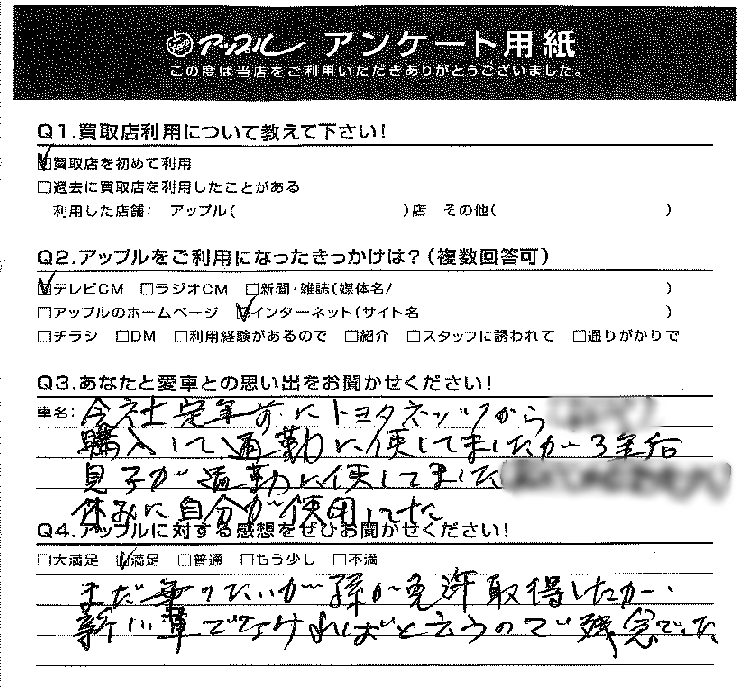 アップル アンケート用紙
この度は当店をご利用いただきありがとうございました。
Q1.買取店利用について教えて下さい!
☑買取店を初めて利用
□過去に買取店を利用したことがある
利用した店舗: アップル( )店 その他( )
Q2.アップルをご利用になったきっかけは?(複数回答可)
☑テレビCM □ラジオCM □新聞・雑誌(媒体名/ )
□アップルのホームページ ☑インターネット(サイト名 )
□チラシ □DM □利用経験があるので □紹介 □スタッフに誘われて □通りがかりで
Q3.あなたと愛車との思い出をお聞かせください!
車名: 会社定年前にトヨタネッツから
購入して通勤に使してましたが3年后
息子が通勤に使してました
休みに自分が使用してた
Q4.アップルに対する感想をぜひお聞かせください!
□大満足 ☑満足 □普通 □もう少し □不満
まだ乗りたいが孫が免許取得したが、
新い車でなければと云うので残念でした